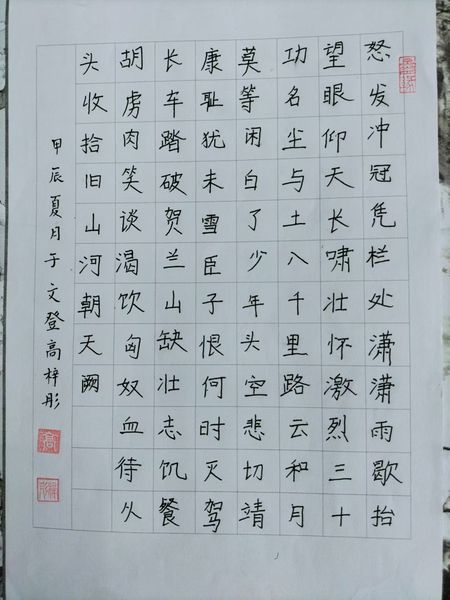 怒发冲冠凭栏处潇潇雨歇抬
望眼仰天长啸壮怀激烈三十
功名尘与土八千里路云和月
莫等闲白了少年头空悲切靖
康耻犹未雪臣子恨何时灭驾
长车踏破贺兰山缺壮志饥餐
胡虏肉笑谈渴饮匈奴血待从
头收拾旧山河朝天阙
甲辰夏月于文登高梓彤